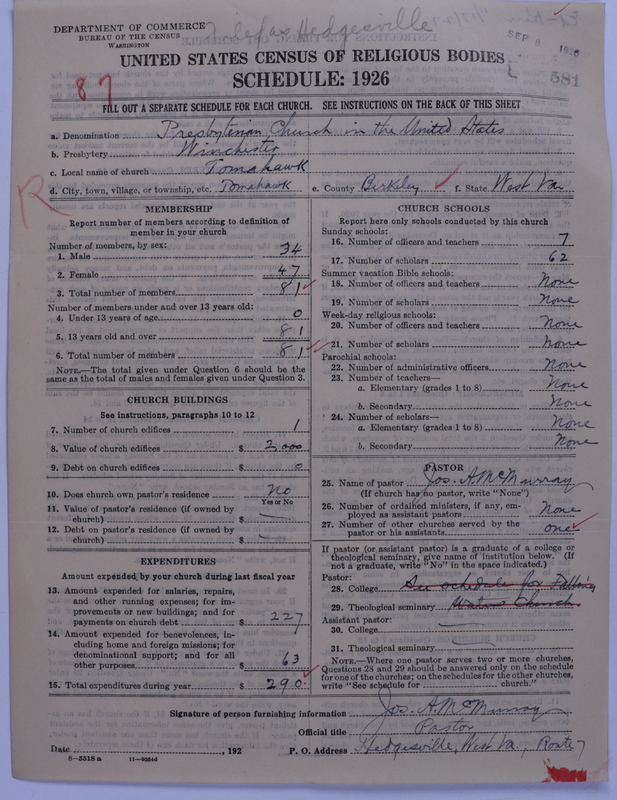 DEPARTMENT OF COMMERCE
BUREAU OF THE CENSUS
WASHINGTON
Hedgesville
SEP
581
UNITED STATES CENSUS OF RELIGIOUS BODIES
SCHEDULE: 1926
87
FILL OUT A SEPARATE SCHEDULE FOR EACH CHURCH. SEE INSTRUCTIONS ON THE BACK OF THIS SHEET
a. Denomination Presbyterian Church in the United States
b. Presbytery Winchester
c. Local name of church Tomahawk
d. City, town, village, or township, etc. Tomahawk e. County Berkeley f. State West Va.
R
MEMBERSHIP
Report number of members according to definition of
member in your church
Number of members, by sex:
1. Male 34
2. Female 47
3. Total number of members 81
Number of members under and over 13 years old:
4. Under 13 years of age 0
5. 13 years old and over 81
6. Total number of members 81
NOTE.—The total given under Question 6 should be
same as the total of males and females given under Question 3.
CHURCH BUILDINGS
See instructions, paragraphs 10 to 12
7. Number of church edifices 1
8. Value of church edifices $ 2,000
9. Debt on church edifices $ 0
10. Does church own pastor's residence No
Yes or No
11. Value of pastor's residence (if owned by
church) $
12. Debt on pastor's residence (if owned by
church) $
EXPENDITURES
Amount expended by your church during last fiscal year
13. Amount expended for salaries, repairs,
and other running expenses; for im-
provements or new buildings; and for
payments on church debt $ 227
14. Amount expended for benevolences, in-
cluding home and foreign missions; for
denominational support; and for all
other purposes $ 63
15. Total expenditures during year $ 290
CHURCH SCHOOLS
Report here only schools conducted by this church
Sunday schools:
16. Number of officers and teachers 7
17. Number of scholars 62
Summer vacation Bible schools:
18. Number of officers and teachers None
19. Number of scholars None
Week-day religious schools:
20. Number of officers and teachers None
21. Number of scholars None
Parochial schools:
22. Number of administrative officers None
23. Number of teachers—
a. Elementary (grades 1 to 8) None
b. Secondary None
24. Number of scholars—
a. Elementary (grades 1 to 8) None
b. Secondary None
PASTOR
25. Name of pastor Jos. A. McMurray
(If church has no pastor, write "None")
26. Number of ordained ministers, if any, em-
ployed as assistant pastors None
27. Number of other churches served by the
pastor or his assistants one
If pastor (or assistant pastor) is a graduate of a college or
theological seminary, give name of institution below. (If
not a graduate, write "No" in the space indicated.)
Pastor:
28. College See schedule for Falling
29. Theological seminary Waters Church
Assistant pastor:
30. College
31. Theological seminary
NOTE.—Where one pastor serves two or more churches,
Questions 28 and 29 should be answered only on the schedule
for one of the churches; on the schedules for the other churches,
write "See schedule for church."
Signature of person furnishing information Jos. A. McMurray
Official title Pastor
Date , 192 P. O. Address Hedgesville, West Va., Route 7
8—5518 a